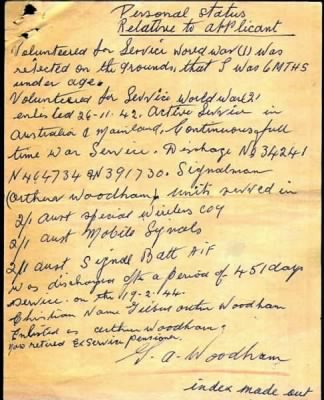 Personal status
Relative to applicant
Volunteered for Service World War (1) was
rejected on the grounds, that I was 6 MTHS
under age.
Volunteered for Service World War (2)
enlisted 26-11-42. Active Service in
Australia & Mainland, Continuous full
time War Service. Discharge No 34241
N464734 & N391730. Signalman
(Arthur Woodham) Units served in
2/1 Aust Special Wireless Coy
2/1 Aust Mobile Signals
2/1 Aust Signal Batt AIF
was discharged after a period of 451 days
service. on the 19-2-44.
Christian Name Arthur Woodham
Enlisted as Arthur Woodham,
retired Ex Service pensioner.
G. A. Woodham
index made out